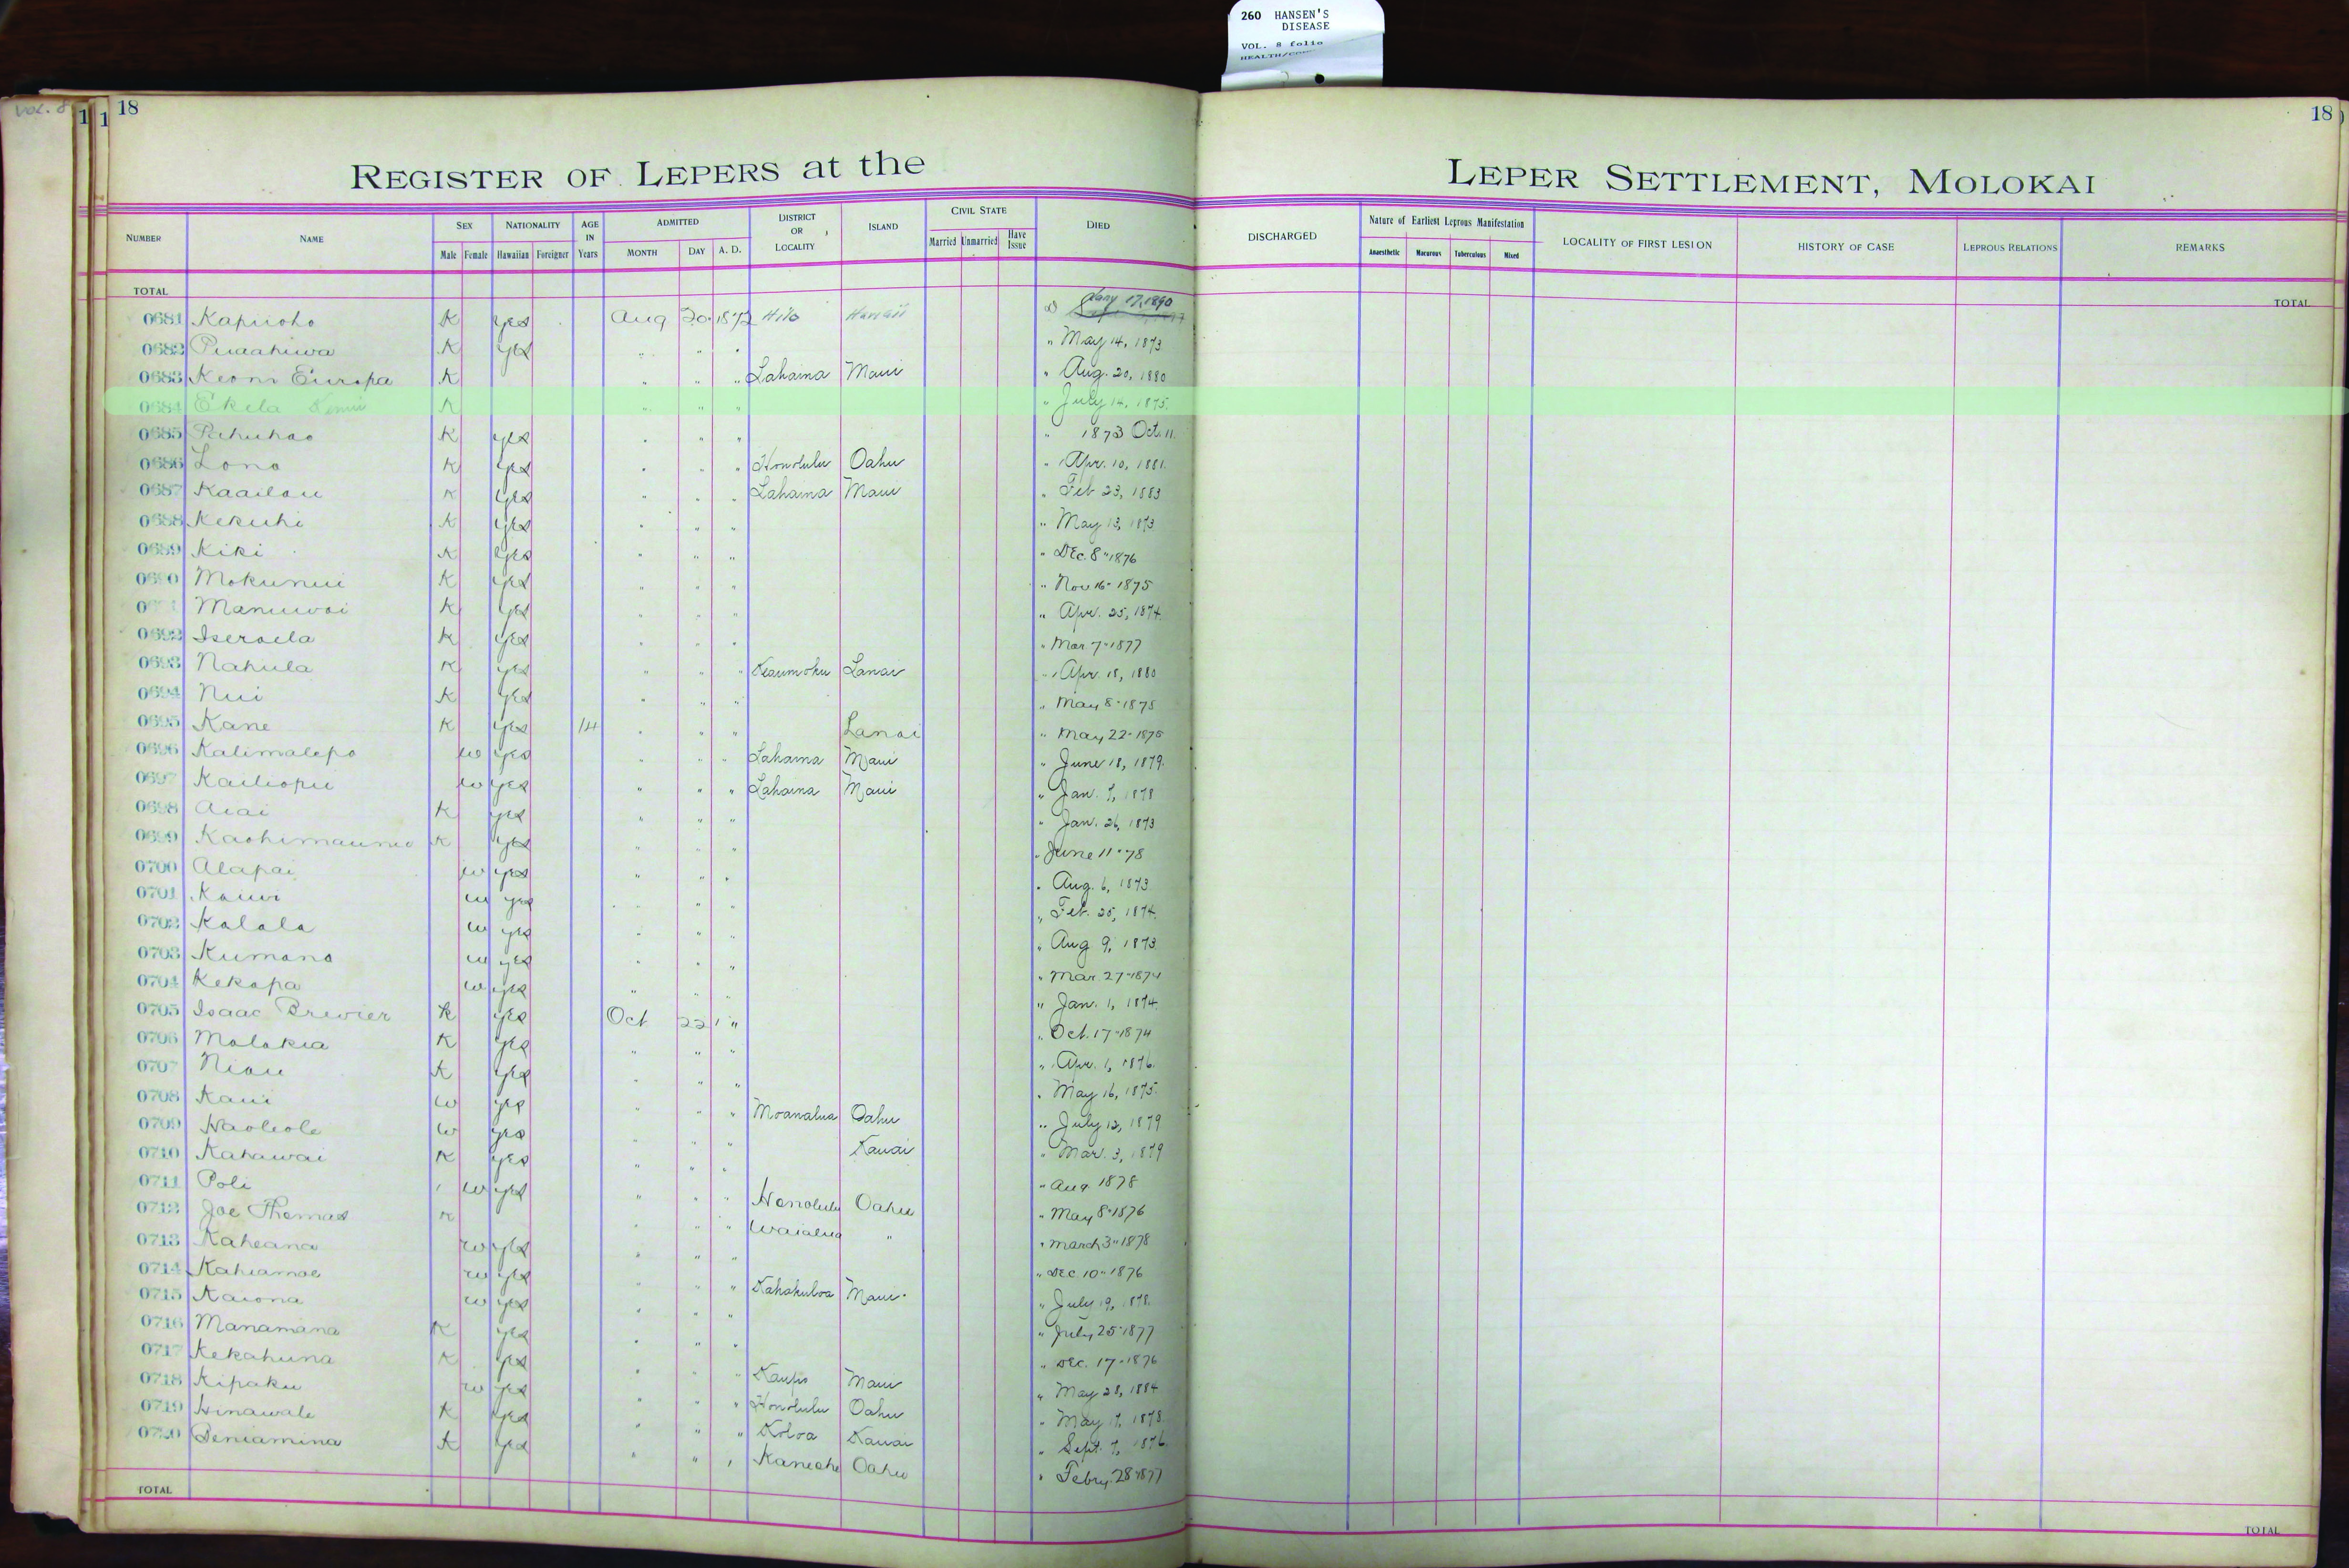 260 HANSEN'S
DISEASE
VOL. 8 folio
VOL. 8
18
18
REGISTER OF LEPERS at the LEPER SETTLEMENT, MOLOKAI
NUMBER NAME SEX Male Female NATIONALITY Hawaiian Foreigner AGE IN Years ADMITTED MONTH DAY A. D. DISTRICT OR LOCALITY ISLAND CIVIL STATE Married Unmarried Have Issue DIED DISCHARGED Nature of Earliest Leprous Manifestation Anaesthetic Macurous Tuberculous Mixed LOCALITY OF FIRST LESION HISTORY OF CASE LEPROUS RELATIONS REMARKS
TOTAL TOTAL
0681 Kapiioho K yes Aug 20 1872 Hilo Hawaii Jany 17, 1890
0682 Puaahiwa K yes " " " " May 14, 1873
0683 Keoni Europa K " " " Lahaina Maui " Aug. 20, 1880
0684 Ekela K " " " " July 14, 1875
0685 Pahuhao K yes " " " " 1873 Oct. 11
0686 Lono K yes " " " Honolulu Oahu " Apr. 10, 1881
0687 Kaailau K yes " " " Lahaina Maui " Feb 23, 1883
0688 Kekuhi K yes " " " " May 13, 1873
0689 Kiki K yes " " " " Dec. 8" 1876
0690 Mokunui K yes " " " " Nov 16- 1875
Manuwai K yes " " " " Apr. 25, 1874
0692 Iseraela K yes " " " " Mar 7" 1877
0693 Nahula K yes " " " Keaumoku Lanai " Apr. 18, 1880
0694 Nui K yes " " " " May 8" 1875
0695 Kane K yes 14 " " " Lanai " May 22- 1875
0696 Kalimalepo w yes " " " Lahaina Maui " June 18, 1879
0697 Kailiopu w yes " " " Lahaina Maui " Jan. 7, 1878
0698 Aiai K yes " " " " Jan. 26, 1873
0699 K yes " " " " June 11" 78
0700 Alapai w yes " " " " Aug. 6, 1873
0701 Kauwi w yes " " " " Feb. 25, 1874
0702 Kalala w yes " " " " Aug 9, 1873
0703 Kumano w yes " " " " Mar. 27" 1874
0704 Kekapa w yes " " " " Jan. 1, 1874
0705 Isaac Brewier K yes Oct 22 " " Oct. 17" 1874
0706 Molokia K yes " " " " Apr. 1, 1876
0707 Niau K yes " " " " May 16, 1875
0708 Kaui w yes " " " Moanalua Oahu " July 12, 1879
0709 Haoleole w yes " " " Kauai " Mar. 3, 1879
0710 Kahawai K yes " " " " Aug 1878
0711 Poli w yes " " " Honolulu Oahu " May 8" 1876
0712 Joe Thomas K " " " Waialua " " March 3" 1878
0713 Kaheana w yes " " " " Dec 10" 1876
0714 Kahiamoe w yes " " " Kahakuloa Maui " July 19, 1878
0715 Kaiona w yes " " " " July 25" 1877
0716 Manamana K yes " " " " Dec. 17- 1876
0717 Kekahuna K yes " " " Kaupo Maui " May 28, 1884
0718 Kipaku w yes " " " Honolulu Oahu " May 17, 1878
0719 Hinawale K yes " " " Koloa Kauai " Sept. 7, 1876
0720 Peniamina K yes " " " Kaneohe Oahu " Febry. 28" 1877
TOTAL TOTAL